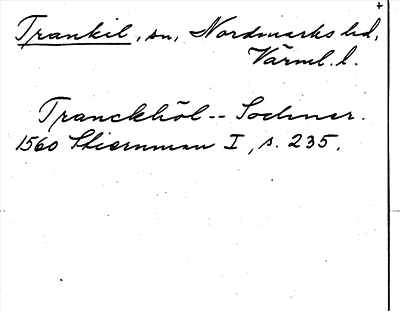 Trankil, sn, Nordmarks hd,
Värml. l.
Tranckhöl -- Sochner.
1560 Stiernman I, s. 235.